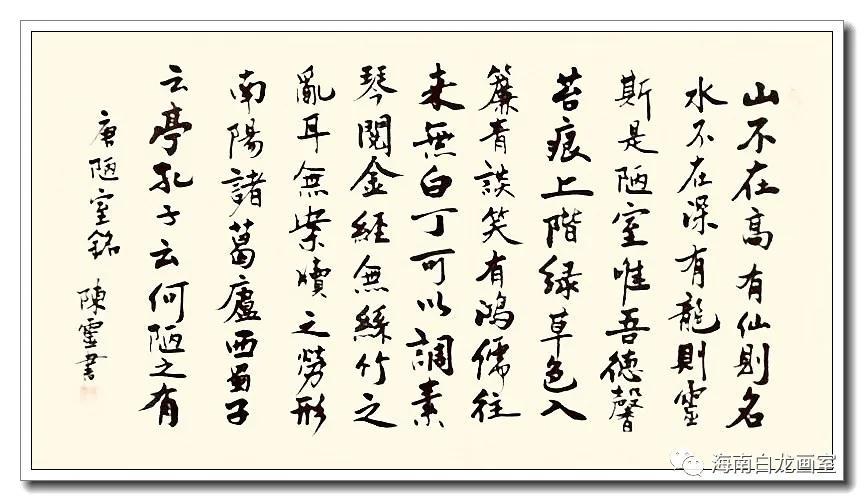 山不在高有仙則名
水不在深有龍則靈
斯是陋室唯吾德馨
苔痕上階緑草色入
簾青談笑有鴻儒往
来無白丁可以調素
琴閱金經無絲竹之
亂耳無案牘之勞形
南陽諸葛廬西蜀子
云亭孔子云何陋之有
唐陋室銘 陳靈書
海南白龙画室